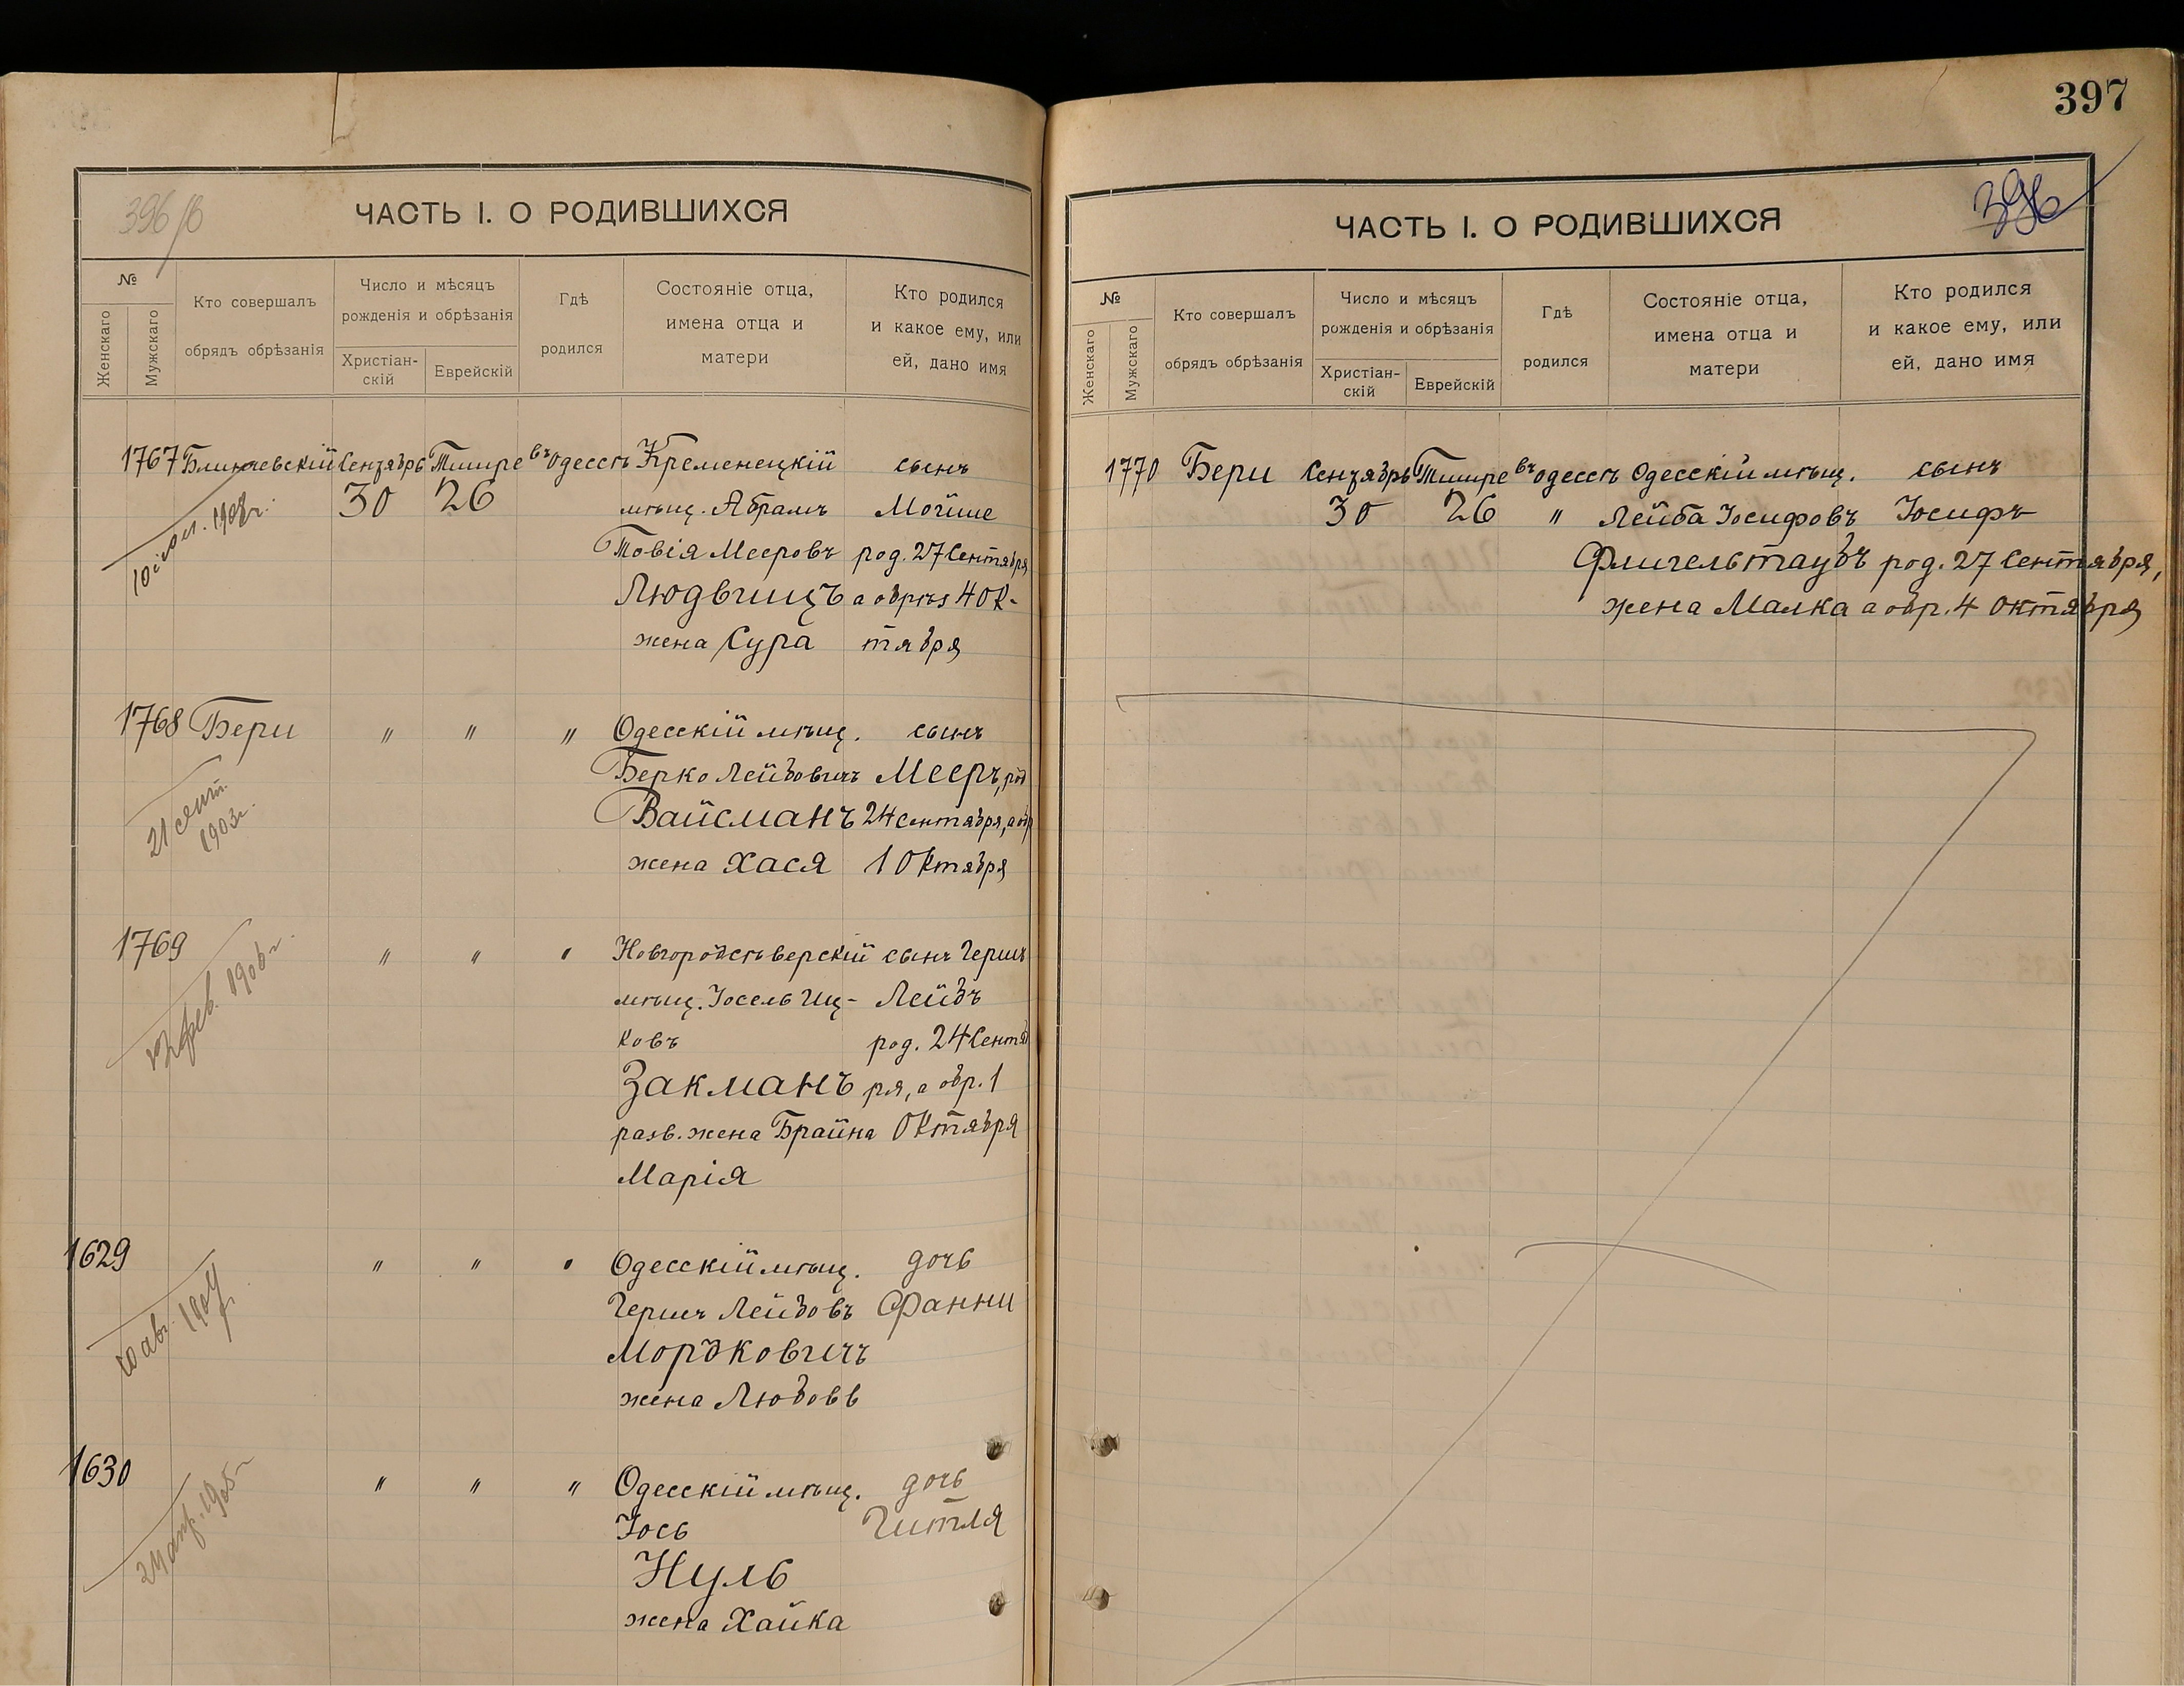 397
396/б
ЧАСТЬ I. О РОДИВШИХСЯ
№
Женскаго
Мужскаго
Кто совершалъ
обрядъ обрѣзанія
Число и мѣсяцъ
рожденія и обрѣзанія
Христіан-
скій
Еврейскій
Гдѣ
родился
Состояніе отца,
имена отца и
матери
Кто родился
и какое ему, или
ей, дано имя
1767 Сентябрь Тишре въ Одессѣ Кременецкій сынъ
30 26 мѣщ. Абрамъ Мойше
Товія Мееровъ род. 27 Сентября
Людвищъ а обрѣз 4 Ок-
жена Сура тября
1768 Бери " " " Одесскій мѣщ. сынъ
Берко Лейбовичъ Мееръ, род
21 сент. 1903г. Вайсманъ 24 сентября, а обр
жена Хася 1 Октября
1769 " " " Новгородсѣверскій сынъ Гершъ
мѣщ. Іосель Иц- Лейбъ
12 фев. 1906г. ковъ род. 24 Сентяб
Закманъ ря, а обр. 1
разв. жена Брайна Октября
Марія
1629 " " " Одесскій мѣщ. дочь
Гершъ Лейбовъ Фанни
Мордковичъ
жена Любовь
1630 " " " Одесскій мѣщ. дочь
Іось Гитля
Нуль
жена Хайка
396
ЧАСТЬ I. О РОДИВШИХСЯ
№
Женскаго
Мужскаго
Кто совершалъ
обрядъ обрѣзанія
Число и мѣсяцъ
рожденія и обрѣзанія
Христіан-
скій
Еврейскій
Гдѣ
родился
Состояніе отца,
имена отца и
матери
Кто родился
и какое ему, или
ей, дано имя
1770 Бери Сентябрь Тишре въ Одессѣ Одесскій мѣщ. сынъ
30 26 " Лейба Іосифовъ Іосифъ
Флигельтаубъ род. 27 Сентября,
жена Малка а обр. 4 Октября